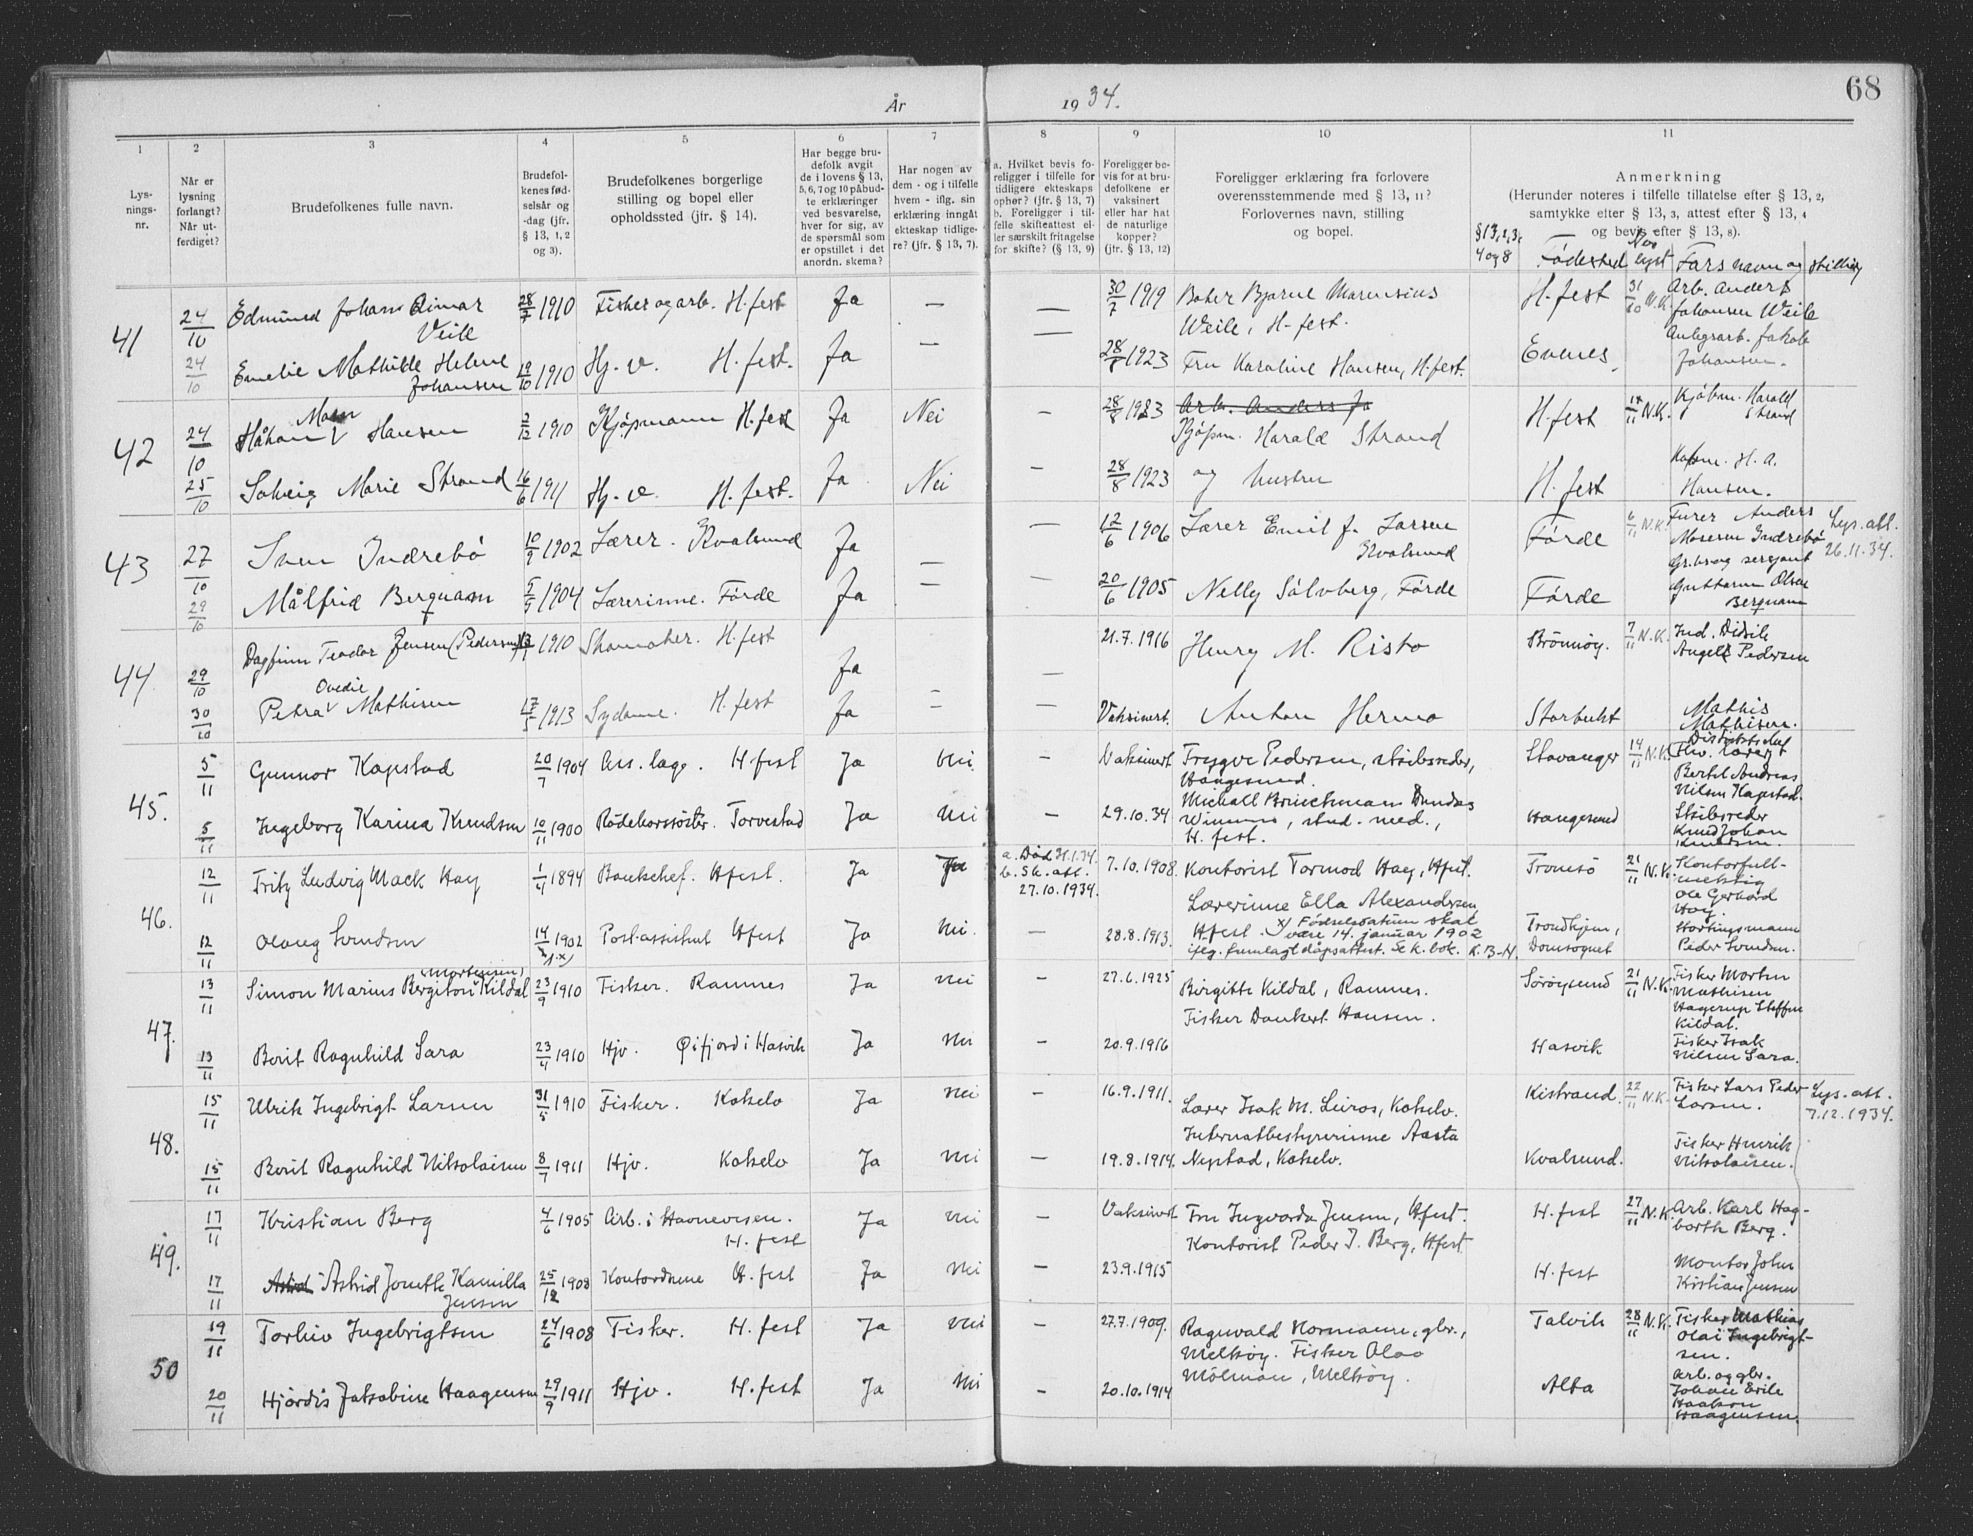 År 1934. 68
1 2 3 4 5 6 7 8 9 10 11
Lys-
nings-
nr.
Når er
lysning
forlangt?
Når ut-
ferdiget?
Brudefolkenes fulle navn.
Brudefol-
kenes fød-
selsår og
-dag (jfr.
§ 13, 1, 2
og 3).
Brudefolkenes borgerlige
stilling og bopel eller
opholdssted (jfr. § 14).
Har begge bru-
defolk avgit
de i lovens § 13,
5, 6, 7 og 10 påbud-
te erklæringer
ved besvarelse,
hver for sig, av
de spørsmål som
er opstillet i det
anordn. skema?
Har nogen av
dem - og i tilfelle
hvem - iflg. sin
erklæring inngått
ekteskap tidlige-
re? (jfr. § 13, 7).
a. Hvilket bevis fo-
religger i tilfelle for
tidligere ekteskaps
ophør? (jfr. § 13, 7)
b. Foreligger i til-
felle skifteattest el-
ler særskilt fritagelse
for skifte? (§ 13, 9)
Foreligger be-
vis for at bru-
defolkene er
vaksinert
eller har hat
de naturlige
kopper?
(jfr. § 13, 12)
Foreligger erklæring fra forlovere
overensstemmende med § 13, 11?
Forlovernes navn, stilling
og bopel.
Anmerkning
(Herunder noteres i tilfelle tillatelse efter § 13, 2,
samtykke efter § 13, 3, attest efter § 13, 4
og bevis efter § 13, 8).
§13,2,3,
4 og 8 Fødested lyst Fars navn og stilling
41 24/10 Edmund Johans Einar
Veile 28/7 1910 Fisker og arb. H.fest Ja — — 30/7 1919 Baker Bjarne Marensius
Weile, H-fest. H.fest 31/10 N.K. Arb. Anders
Johansen Weile
24/10 Emelie Mathilde Helene
Johansen 19/10 1910 Hj. v. H.fest. Ja — — 28/8 1923 Fru Karoline Hansen, H.fest. Evenes, Anlegsarb. Jakob
Johansen.
42 24/10 Håkon Hansen 2/12 1910 Kjøpmann H.fest Ja Nei — 28/8 1923 Arb. Anders Jo
Kjøpm. Harald Strand H.fest 14/11 N.K. Kjøbm. Harald
Strand
25/10 Solveig Marie Strand 16/6 1911 Hj. v. H.fest. Ja Nei — 28/8 1923 og hustru H.fest H. A.
Hansen.
43 27/10 Sven Indrebø 10/9 1902 Lærer. Kvalsund Ja — — 12/6 1906 Lærer Emil J. Larsen
Kvalsund Førde 6/11 N.K. Furer Anders
Mosesen Indrebø Lys. att.
26.11.34.
29/10 Målfrid Bergquam 5/9 1904 Lærerinne. Førde Ja — — 20/6 1905 Nelly Sølvberg, Førde Førde Gr.br. og sersjant
Guttorm Olsen
Bergquam
44 29/10 Dagfinn Teodor Jensen (Pedersen) 1910 Skomaker. H.fest Ja — — 21.7.1916 Henry M. Risto Brønnøy. 7/11 N.K. Ind. Didrik
Angell Pedersen
30/10 Petra Ovedie Mathisen 17/5 1913 Sydame. H.fest Ja — — Vaksinert. Anton Hermo Storbukt Mathis
Mathisen.
45. 5/11 Gunnar Kapstad 20/7 1904 Ass. læge. H.fest Ja Nei — Vaksinert Trygve Pedersen, skibsreder,
Haugesund. Stavanger 14/11 N.K. Distriktschef
Bertel Andreas
Nilsen Kapstad.
5/11 Ingeborg Karina Knudsen 10/11 1900 Rødekorssøster. Torvestad Ja Nei — 29.10.34 Michall Bruchmans Dundas
Winsnes, stud. med.,
H. fest. Haugesund Skibsreder
Knud Johan
Knudsen.
46. 12/11 Fritz Ludvig Mack Hay 1/4 1894 Bankchef. H.fest. Ja Ja a. Død 4.1.34.
b. Sk. att.
27.10.1934. 7.10.1908. Kontorist Tormod Hay, H.fest. Tromsø 21/11 N.K. Kontorfull-
mektig
Ole Gerhard
Hay.
12/11 Olaug Svendsen 14/x 1902
1.x) Postassistent H.fest Ja Nei. 28.8.1913. Lærerinne Ella Alexandersen
H.fest. x) Fødselsdatum skal
være 14. januar 1902
ifølg. fremlagt dåpsattest. Se k. bok. K. B-H. Trondhjem,
Domsognet Stortingsmann
Peder Svendsen.
47. 13/11 Simon Marius Bergiton (Mortensen) Kildal 23/9 1910 Fisker. Ramnes Ja Nei — 27.6.1925 Birgitte Kildal, Ramnes.
Fisker Dankert Hansen. Sørøysund 21/11 N.K. Fisker Morten
Mathisen
Hagerup Steffen
Kildal.
13/11 Berit Ragnhild Sara 23/4 1910 Hjv. Øifjord i Hasvik Ja Nei — 20.9.1916 Hasvik Fisker Isak
Nilsen Sara.
48. 15/11 Ulrik Ingebrigt Larsen 31/5 1910 Fisker. Kokelv Ja Nei — 16.9.1911. Lærer Isak M. Leiros, Kokelv.
Internatbestyrerinne Aasta Kistrand. 22/11 N.K. Fisker Lars Peder
Larsen. Lys. att.
7.12.1934.
15/11 Berit Ragnhild Nikolaisen 8/7 1911 Hjv. Kokelv Ja Nei — 19.8.1914. Nystad, Kokelv. Kvalsund. Fisker Henrik
Nikolaisen.
49. 17/11 Kristian Berg 4/6 1905 Arb. i Havnevesen.
H. fest Ja Nei — Vaksinert Fru Ingvarda Jensen, H.fest.
Kontorist Peder J. Berg, H.fest H.fest 27/11 N.K. Arb. Karl Hag-
barth Berg.
17/11 Astrid Jonette Kamilla
Jensen 25/12 1908 Kontordame H.fest Ja Nei — 23.9.1915 H.fest Montør John
Kristian Jensen
50 19/11 Torleiv Ingebrigtsen 24/6 1908 Fisker. H.fest Ja Nei — 27.7.1909. Ragnvald Normann, gbr.,
Melkøy. Fisker Olav Talvik 28/11 N.K. Fisker Mathias
Olai Ingebrigt-
sen.
20/11 Hjørdis Jakobine Haagensen 29/9 1911 Hjv. H.fest Ja Nei — 20.10.1914 Mølman, Melkøy. Alta Arb. og gbr.
Johan Erik
Haakon
Haagensen.